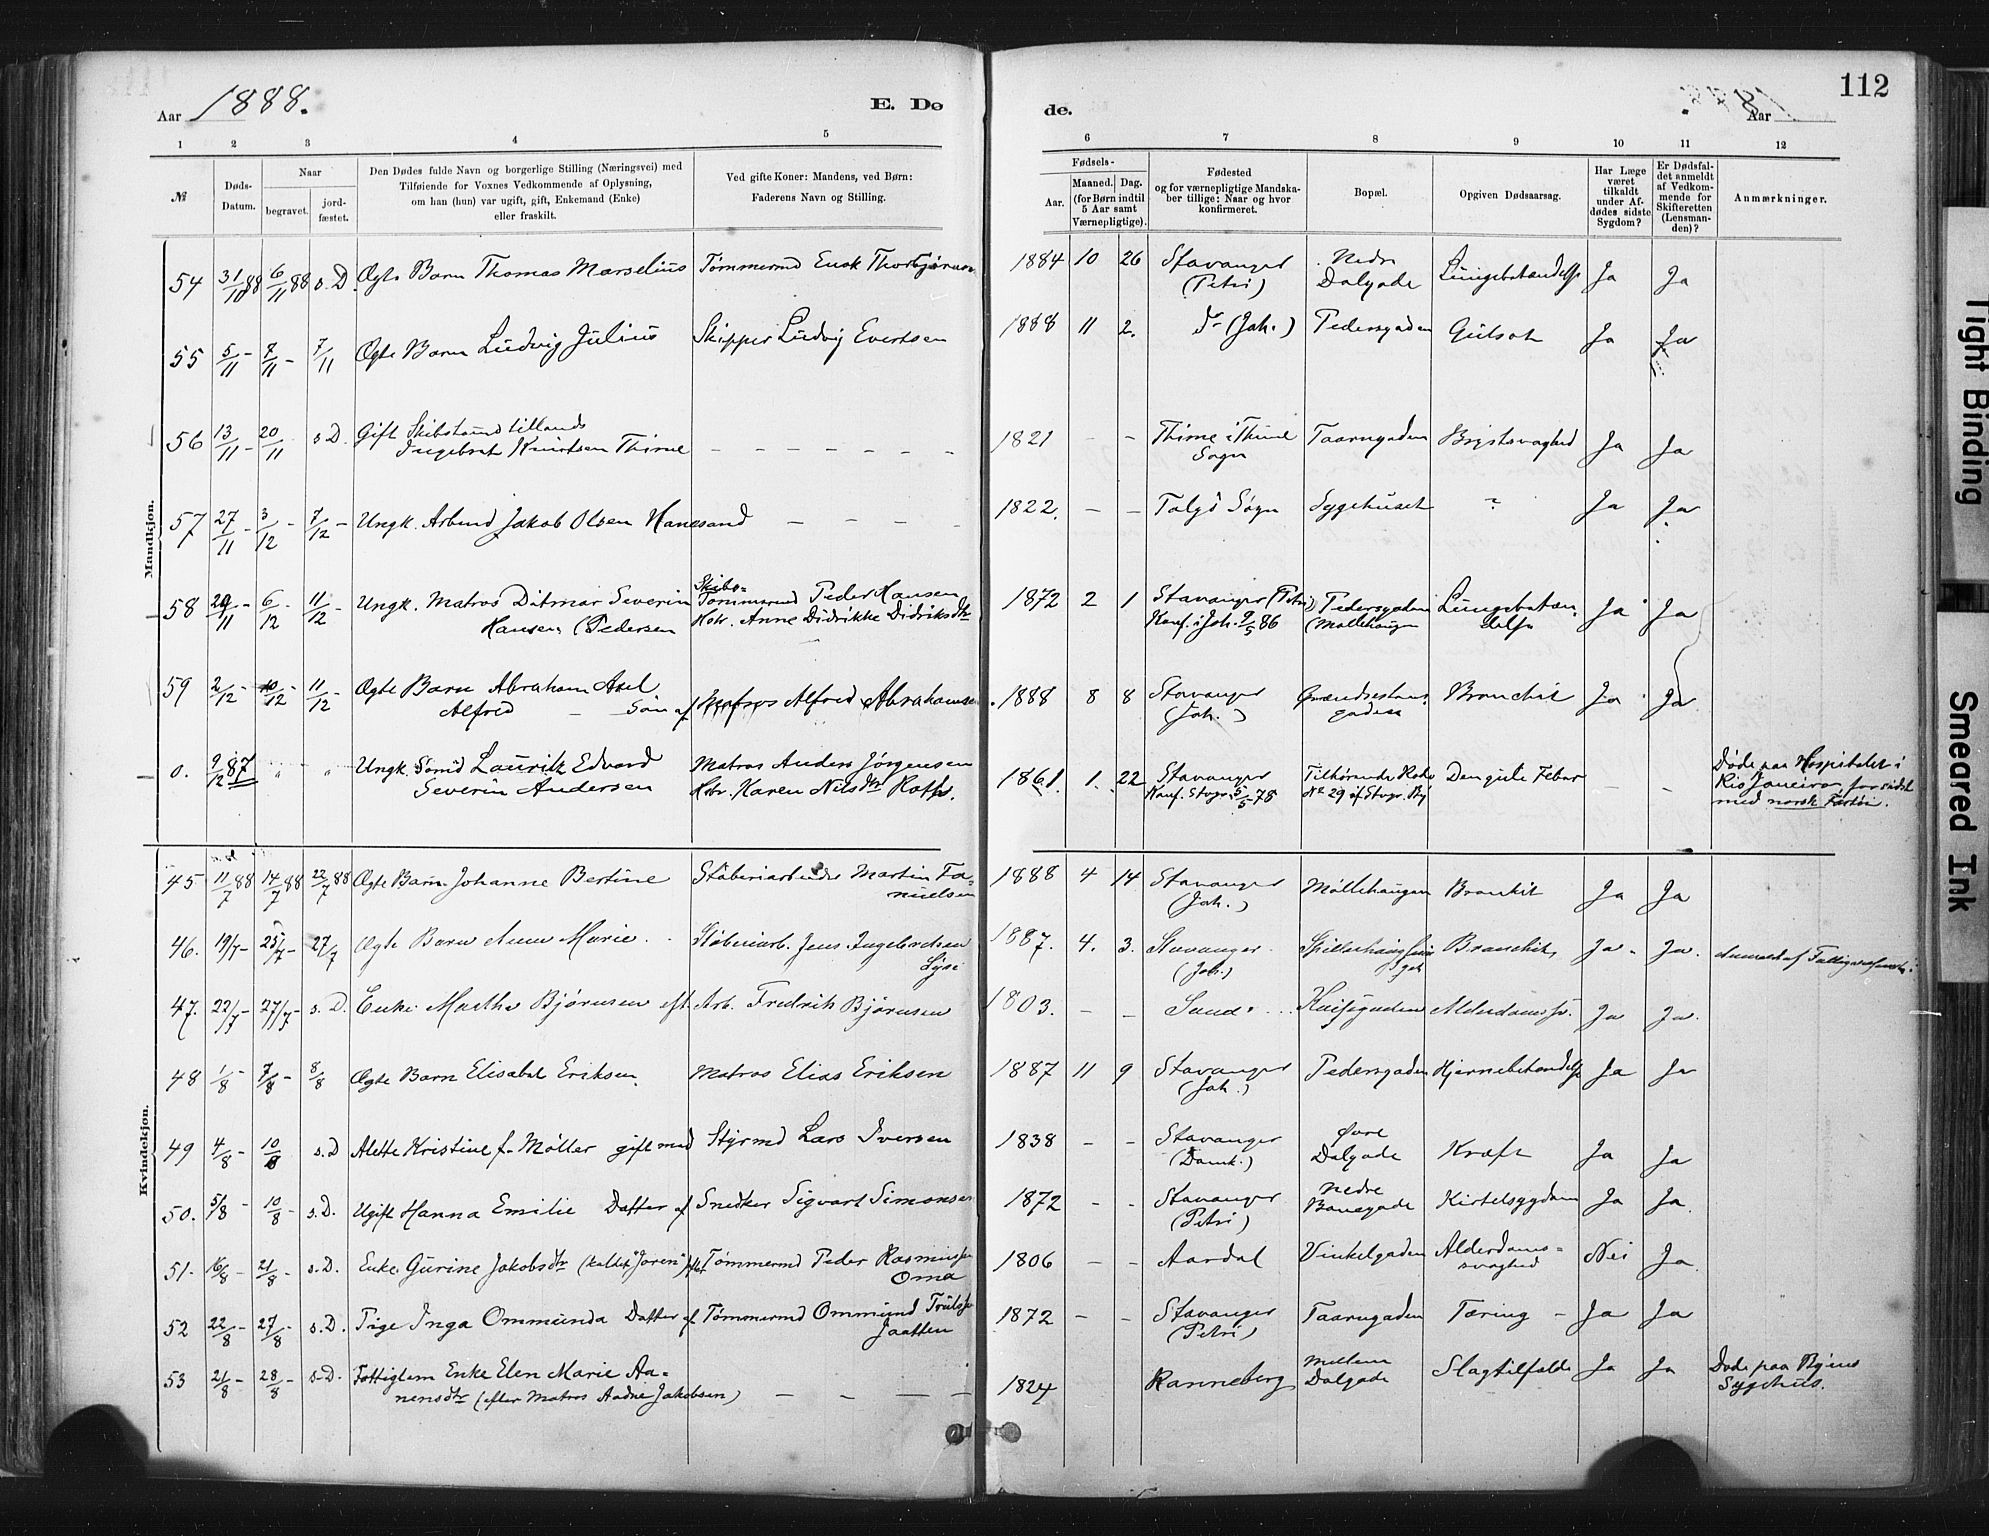 Aar 1888. E. Dø
de. Aar 112
1 2 3 4 5
6 7 8 9 10 11 12
№
Døds-
Datum.
Naar
begravet.
jord-
fæstet.
Den Dødes fulde Navn og borgerlige Stilling (Næringsvei) med
Tilføiende for Voxnes Vedkommende af Oplysning,
om han (hun) var ugift, gift, Enkemand (Enke)
eller fraskilt.
Ved gifte Koner: Mandens, ved Børn:
Faderens Navn og Stilling.
Fødsels-
Aar.
Maaned. Dag.
(for Børn indtil
5 Aar samt
Værnepligtige).
Fødested
og for værnepligtige Mandska-
ber tillige: Naar og hvor
konfirmeret.
Bopæl.
Opgiven Dødsaarsag.
Har Læge
været
tilkaldt
under Af-
dødes sidste
Sygdom?
Er Dødsfal-
det anmeldt
af Vedkom-
mende for
Skifteretten
(Lensman-
den)?
Anmærkninger.
Mandkjøn.
54 31/10 88 6/11 88 s. D. Ægte Barn Thomas Marselius Tømmermd Enok Thorbjørnsen 1884 10 26 Stavanger Nedre Lungebetændelse Ja Ja
(Petri) Dalgade
55 5/11 - 7/11 - 7/11 Ægte Barn Ludvig Julius Skipper Ludvig Evertsen 1888 11 2. Do (Joh.) Pedersgaden Gulsot Ja Ja
56 13/11 - 20/11 s. D. Gift Skibstømd tillands 1821 - - Thime i Thime Taarngaden Brystsvaghed Ja Ja
Ingebret Knudsen Thime - - - - - - - Sogn
57 27/11 - 3/12 - 7/12 - Ungk. Arbmd Jakob Olsen Hanesand - - - - 1822. - - Talgø Sogn Sygehuset ? Ja Ja
58 29/11 - 6/12 - 11/12 - Ungk. Matros Ditmar Severin Skibs- 1872 2 1 Stavanger (Petri) Pedersgaden Lungebetæn- Ja Ja
Hansen (Pedersen Tømmermd Peder Hansen Konf. i Joh. 9/5 86 (Møllehaugen delse
Hstr. Anne Didrikke Didriksdtr
59 2/12 - 10/12 - 11/12 - Ægte Barn Abraham Axel 1888 8 8 Stavanger Grændsestens- Bronchit Ja Ja
Alfred - Søn af Matros Alfred Abrahamsen (Joh.) gaden
0. 9/12 87 " " Ungk. Sømd Lauritz Edvard Matros Anders Jørgensen 1861. 1. 22 Stavanger Tilhørende Rode Den gule Feber - - Døde paa Hospitalet i
Severin Andersen Hstr. Karen Nilsdtr Konf. Stvgr. 5/5-78 No 29 af Stvgr. By Rio Janeiro, for sidst
med norsk Fartøi.
Kvindekjøn.
45 11/7 88 14/7 88 22/7 88 Ægte Barn Johanne Bertine Støberiarbeider Martin Fa- 1888 4 14 Stavanger Møllehaugen Bronkit Ja Ja
nuelsen (Joh.)
46. 19/7 - 25/7 - 27/7 Ægte Barn Anna Marie Støberiarb. Jens Ingebretsen 1887. 4. 3. Stavanger Bronchit, Ja - Ja. Anmeldt af
Lyse (Joh.)
47. 22/7 - 27/7 - s. D. Enke Marthe Bjørnsen eft. Arb. Fredrik Bjørnsen 1803. - - Sand Alderdomssv. Ja Ja.
48 1/8 - 7/8 - 8/8 Ægte Barn Elisabet Eriksen. Matros Elias Eriksen 1887 11 9 Stavanger Pedersgaden Hjernebetændelse Ja Ja
(Joh.)
49 4/8 - 10/8 s. D. Alette Kristine f. Møller gift med Styrmd Lars Iversen 1838 - - Stavanger Øvre Kræft Ja Ja
(Domk.) Dalgade
50. 5/8 - 10/8 - s. D. Ugift Hanna Emilie Datter af Snedker Sigvart Simonsen 1872 - - Stavanger Nedre Kirtelsygdom Ja Ja.
(Petri) Banegade
51. 16/8 - 21/8 - s. D. Enke Gurine Jakobsdtr (kaldet "Joren") eft. Tømmermd Peder Rasmussen 1806 - - Aardal Vinkelgaden Alderdoms- Nei Ja
Oma svaghed
52 22/8 - 27/8 - s. D. Pige Inga Ommunda Datter af Tømmermd Ommund Trulssen 1872 - - Stavanger Taarngaden Tæring - Ja Ja
Jaatten (Petri)
53 21/8 - 28/8 - s. D. Fattiglem Enke Elen Marie Aa- 1824 Ranneberg Mellem Slagtilfælde Ja Ja Døde paa Byens
nensdtr (efter Matros Aadne Jakobsen) - - - - Dalgade Sygehus.
Tight Binding
Smeared Ink